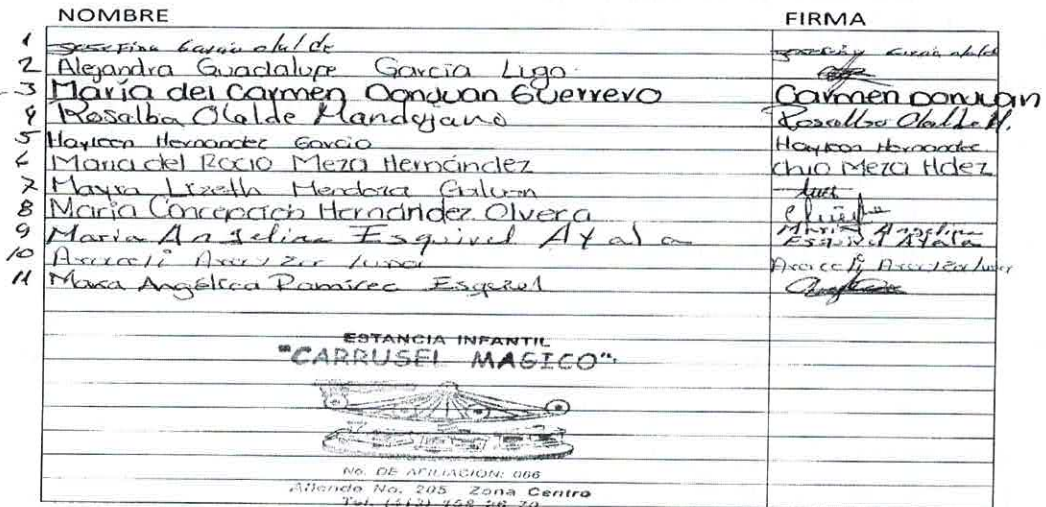 NOMBRE FIRMA
1 Josefina García olalde Josefina García olalde
2 Alejandra Guadalupe García Lugo.
3 María del Carmen Donjuan Guerrero Carmen Donjuan
4 Rosalba Olalde Mandujano Rosalba Olalde M.
5 Hayleen Hernandez Garcia Hayleen Hernandez
6 Maria del Rocio Meza Hernández Chio Meza Hdez
7 Mayra Lizeth Mendoza Galvan
8 María Concepción Hernández Olvera
9 Maria Angelina Esquivel Ayala Maria Angelina Esquivel Ayala
10 Araceli luna Araceli luna
11 Maria Angélica Ramirez Esquivel
ESTANCIA INFANTIL
"CARRUSEL MAGICO".
No. DE AFILIACION: 066
Allende No. 205 Zona Centro
Tel.